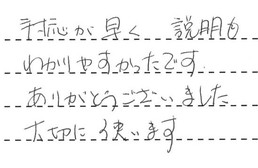 対応が早く 説明も
わかりやすかったです.
ありがとうございました
大切に使います